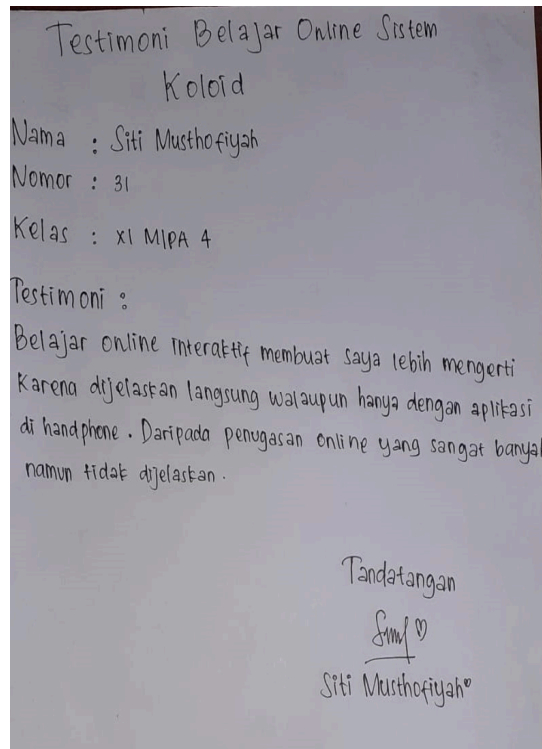 Testimoni Belajar Online Sistem
Koloid
Nama : Siti Musthofiyah
Nomor : 31
Kelas : XI MIPA 4
Testimoni :
Belajar online interaktif membuat saya lebih mengerti
karena dijelaskan langsung walaupun hanya dengan aplikasi
di handphone. Daripada penugasan online yang sangat banyak
namun tidak dijelaskan.
Tandatangan
Siti Musthofiyah